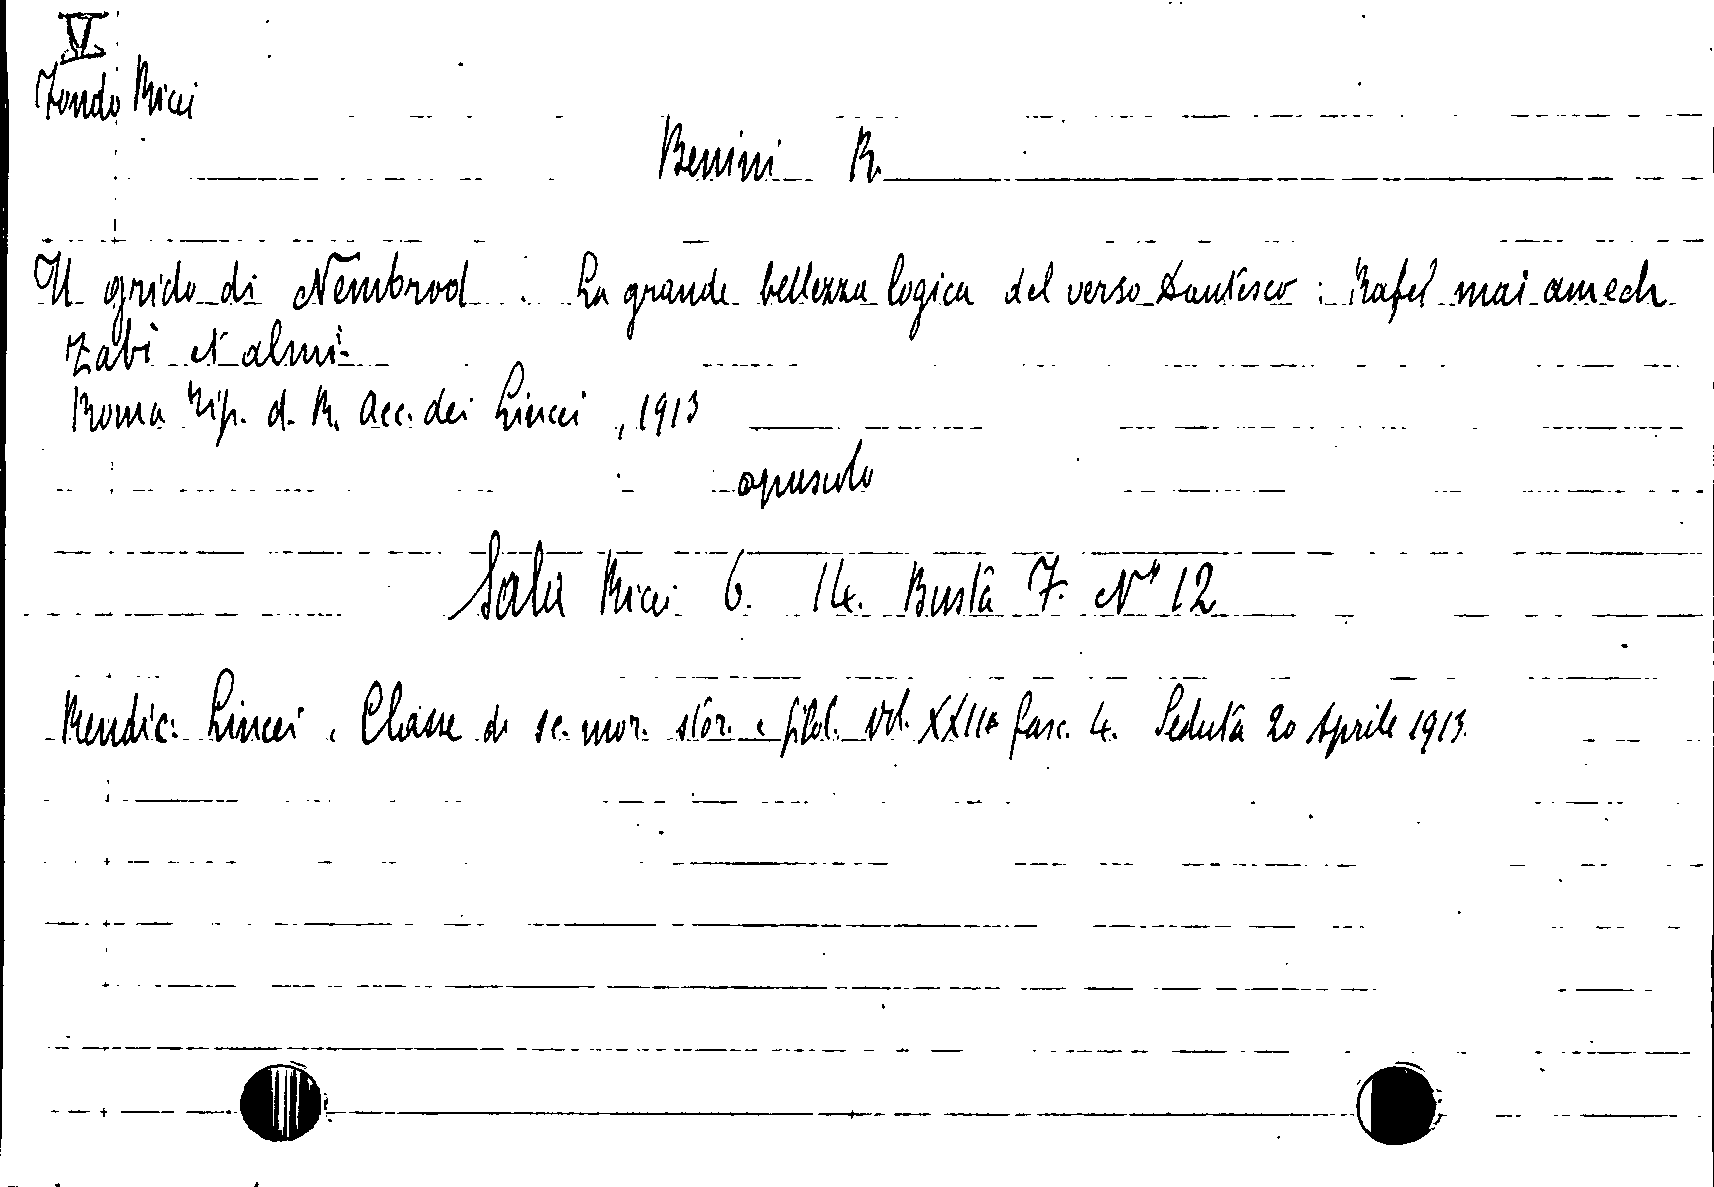 V
Fondo Ricci
Benini R.
Il grido di Nembrod . La grande bellezza logica del verso Dantesco : Rafel mai amech
Zabi et almi-
Roma Tip. d. R. Acc. dei Lincei , 1913
opuscolo
Sala Ricci 6. 14. Busta 7. N° 12
Rendic. Lincei . Classe di sc. mor. stor. e filol. vol. XXII° fasc. 4. Seduta 20 Aprile 1913.